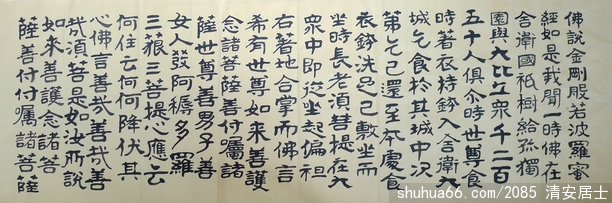 佛說金剛般若波羅蜜
經如是我聞一時佛在
舍衛國祇樹給孤獨
園與大比丘眾千二百
五十人俱尒時世尊食
時著衣持鉢入舍衛大
城乞食於其城中次
第乞已還至本處食
衣鉢洗足已敷坐而
坐時長老須菩提在大
眾中即從坐起偏袒
右著地合掌而佛言
希有世尊如來善護
念諸菩薩善付囑諸菩
薩世尊善男子善
女人發阿耨多羅
三藐三菩提心應云
何住云何何降伏其
心佛言善哉善哉善
哉須菩是如汝所說
如來善護念諸菩
薩善付付囑諸菩薩
shuhua66.com/2085 清安居士